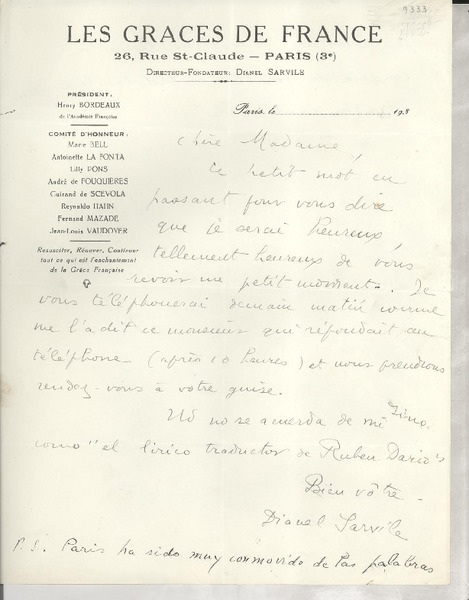 9333
LES GRACES DE FRANCE
26, Rue St-Claude — PARIS (3e)
DIRECTEUR-FONDATEUR: DIANEL SARVILE
PRÉSIDENT:
Henry BORDEAUX
de l'Académie Française
COMITÉ D'HONNEUR:
Marie BELL
Antoinette LA FONTA
Lilly PONS
André de FOUQUIÈRES
Guirand de SCEVOLA
Reynaldo HAHN
Fernand MAZADE
Jean-Louis VAUDOYER
Ressusciter, Rénover, Continuer
tout ce qui est l'enchantement
de la Grâce Française
Paris, le 193
Chère Madame,
Ce petit mot en
passant pour vous dire
que je serai heureux
tellement heureux de vous
revoir un petit moment. Je
vous téléphonerai demain matin comme
me l'a dit ce monsieur qui répondait au
téléphone (après 10 heures) et nous prendrions
rendez-vous à votre guise.
Ud no se acuerda de mi
como "el lirico traductor de Ruben Dario"
Bien vôtre
Dianel Sarvile
P.S. Paris ha sido muy conmovido de las palabras